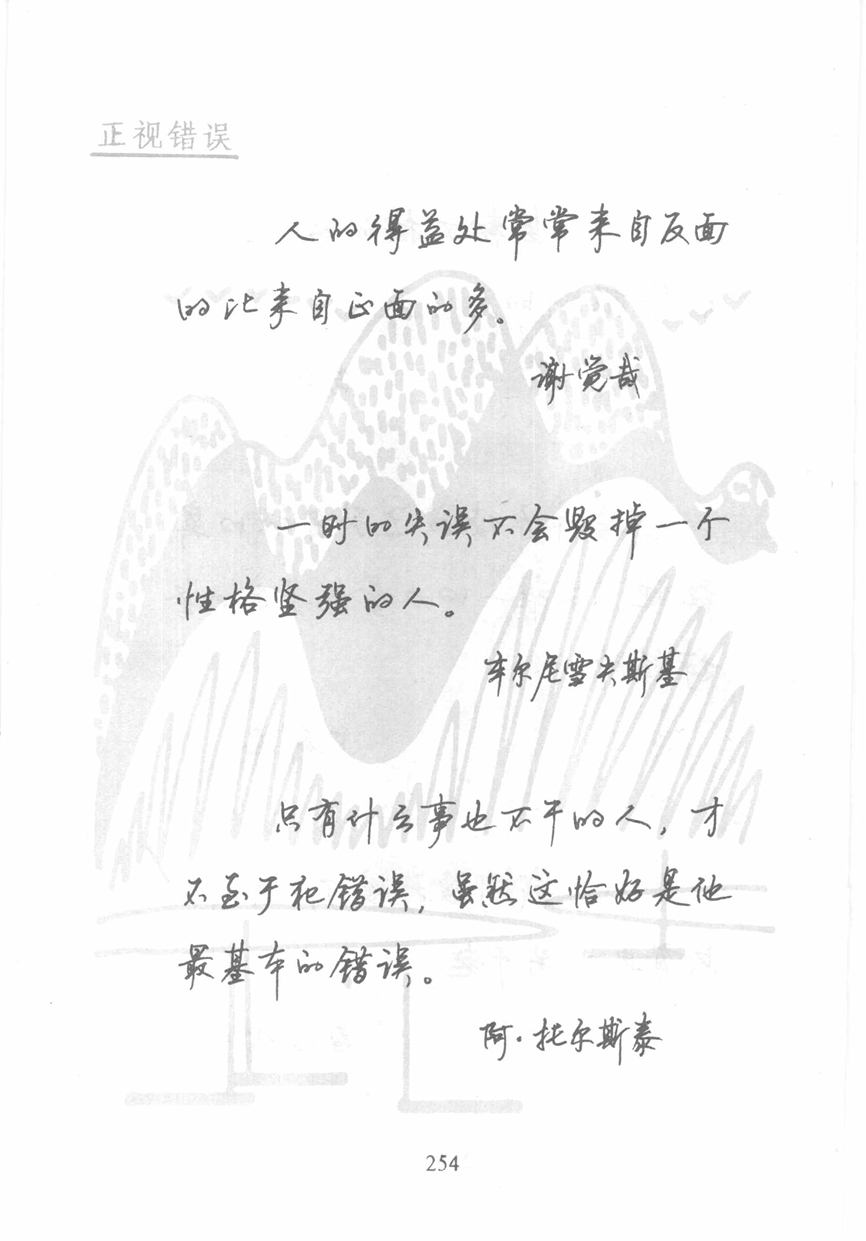 正视错误
人的得益处常常来自反面
的比来自正面的多。
谢觉哉
一时的失误不会毁掉一个
性格坚强的人。
车尔尼雪夫斯基
只有什么事也不干的人，才
不至于犯错误，虽然这恰好是他
最基本的错误。
阿·托尔斯泰
254